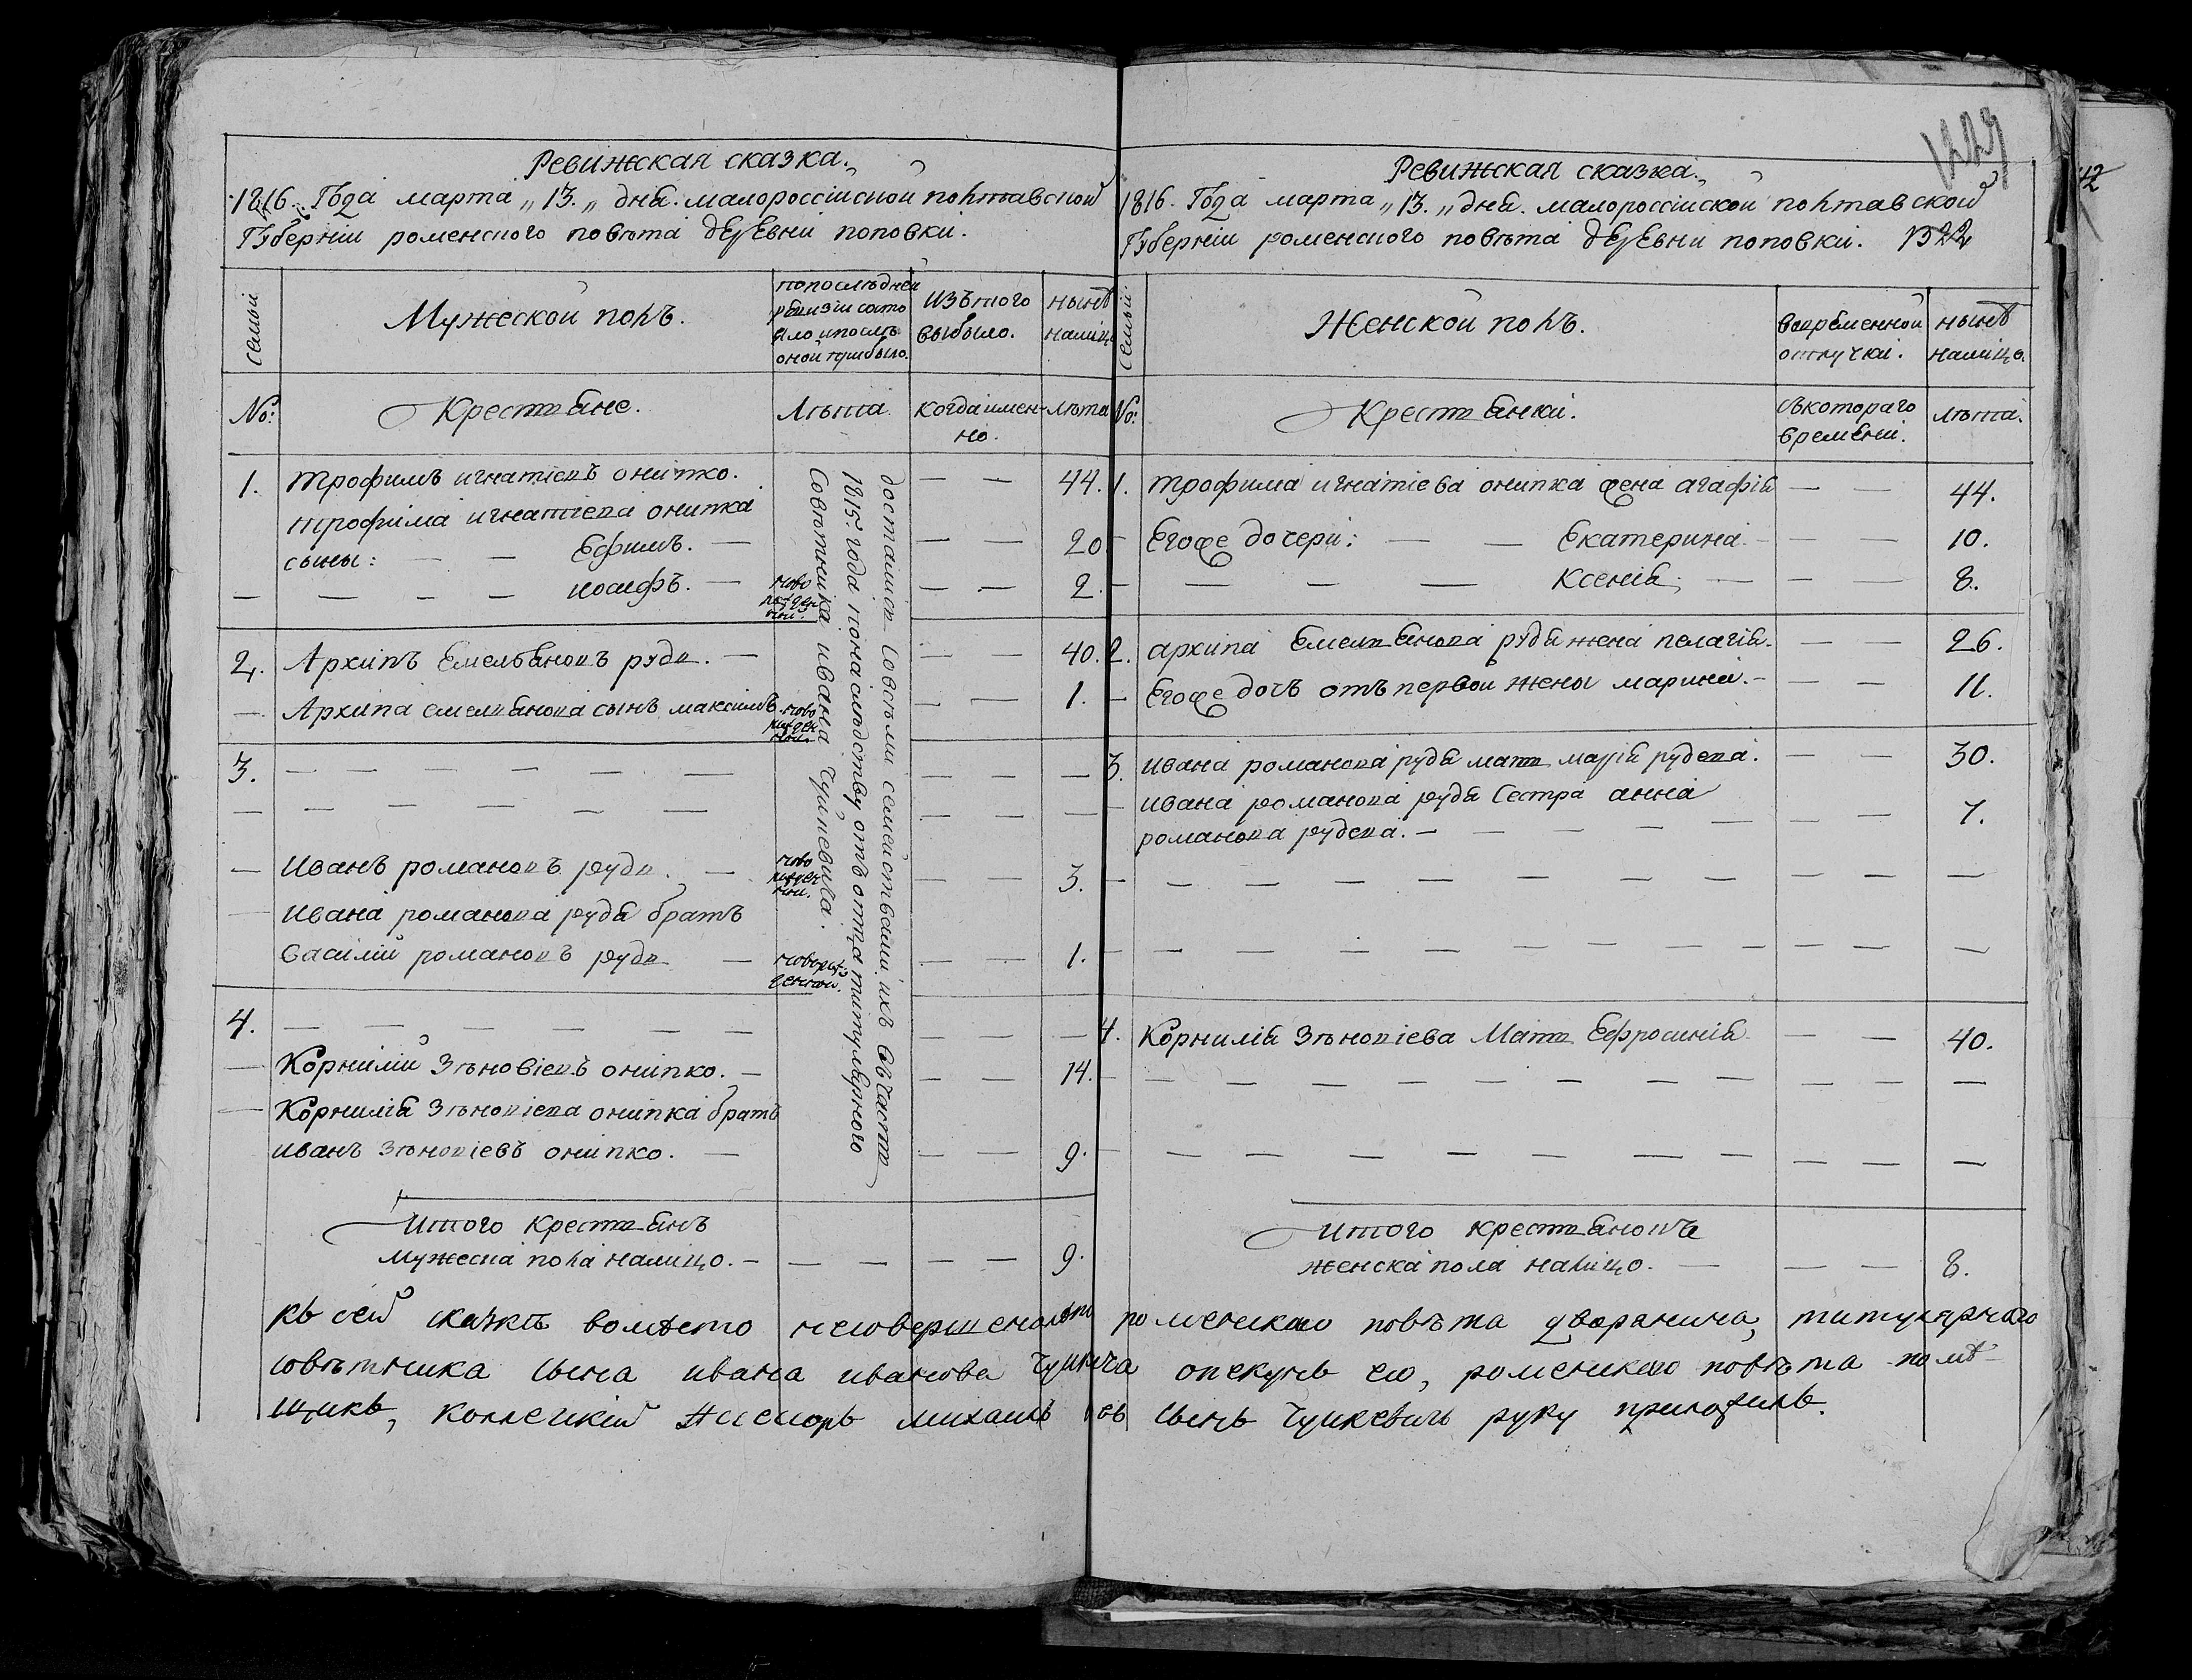 Ревижская сказка.
1816. Года марта „13.„ дня. малороссийской полтавской
Губерніи роменского повѣта деревни поповки.
семьи
Мужеской полъ.
попослѣдней
ревизіи состо
яло ипослѣ
оной прибыло.
Изътого
выбыло.
нынѣ
налицо
№:
Крестьяне.
Лѣта.
когда имен-
но.
лѣта
1. трофимъ игнатіевъ онипко. — — 44.
трофима игнатіева онипка
сыны: — — Ефимъ. — — — 20
— — — — — иосифъ. — ново рожден ный. — — 2.
2. Архипъ Емельяновъ рудь. — — — 40.
— Архипа емельянова сынъ максимъ. ново рожден ный. — — 1.
3. — — — — — — — — —
— — — — — — — — — —
— Иванъ романовъ рудь. — ново рожден ный. — — 3.
— Ивана романова рудя братъ
Василій романовъ рудь — новорож денный. — — 1.
4. — — — — — — — — —
— Корнилій Зѣновіевъ онипко. — — — 14.
— Корнилія Зѣновіева онипка братъ
иванъ Зѣновіевъ онипко. — — — 9.
достались совсѣми семействами ихъ въчасть
1815. года понаслѣдству отъ отца титулярного
Совѣтника ивана Чуйкевича.
Итого крестьянъ
мужеска пола налицо. — — — — — 9.
Ревижская сказка.
1816. Года марта „13.„ дня. малороссійской полтавской
Губерніи роменского повѣта деревни поповки. 1522
1229
42
Семьи.
Женской полъ.
вовременной
отлучки.
нынѣ
налицо.
№:
Крестьянки.
съкотораго
времени.
лѣта.
1. трофима игнатіева онипка жена агафія — — 44.
— Егоже дочери: — — Екатерина — — — 10.
— — — — Ксенія; — — — 8.
2. архипа Емельянова рудя жена пелагія. — — 26.
— Егоже дочь отъ первой жены марина. — — — 11.
3. ивана романова рудя мать марія рудева. — — 30.
— ивана романова рудя Сестра анна
романова рудева. — — — — — — — — 7.
— — — — — — — — — — — —
— — — — — — — — — — — —
4. Корнилія Зѣновіева Мать Ефросинія — — 40.
— — — — — — — — — — — —
— — — — — — — — — — — —
Итого крестьянокъ
женска пола налицо. — — — 8.
къ сей сказкѣ вомѣсто несовершенолѣтн роменского повѣта дворянина, титулярного
совѣтника сына ивана иванова Чуйкевича опекунъ его, роменского повѣта помѣ-
щикъ, коллежкій Ассесоръ михаилъ сынъ Чуйкевичъ руку приложилъ.